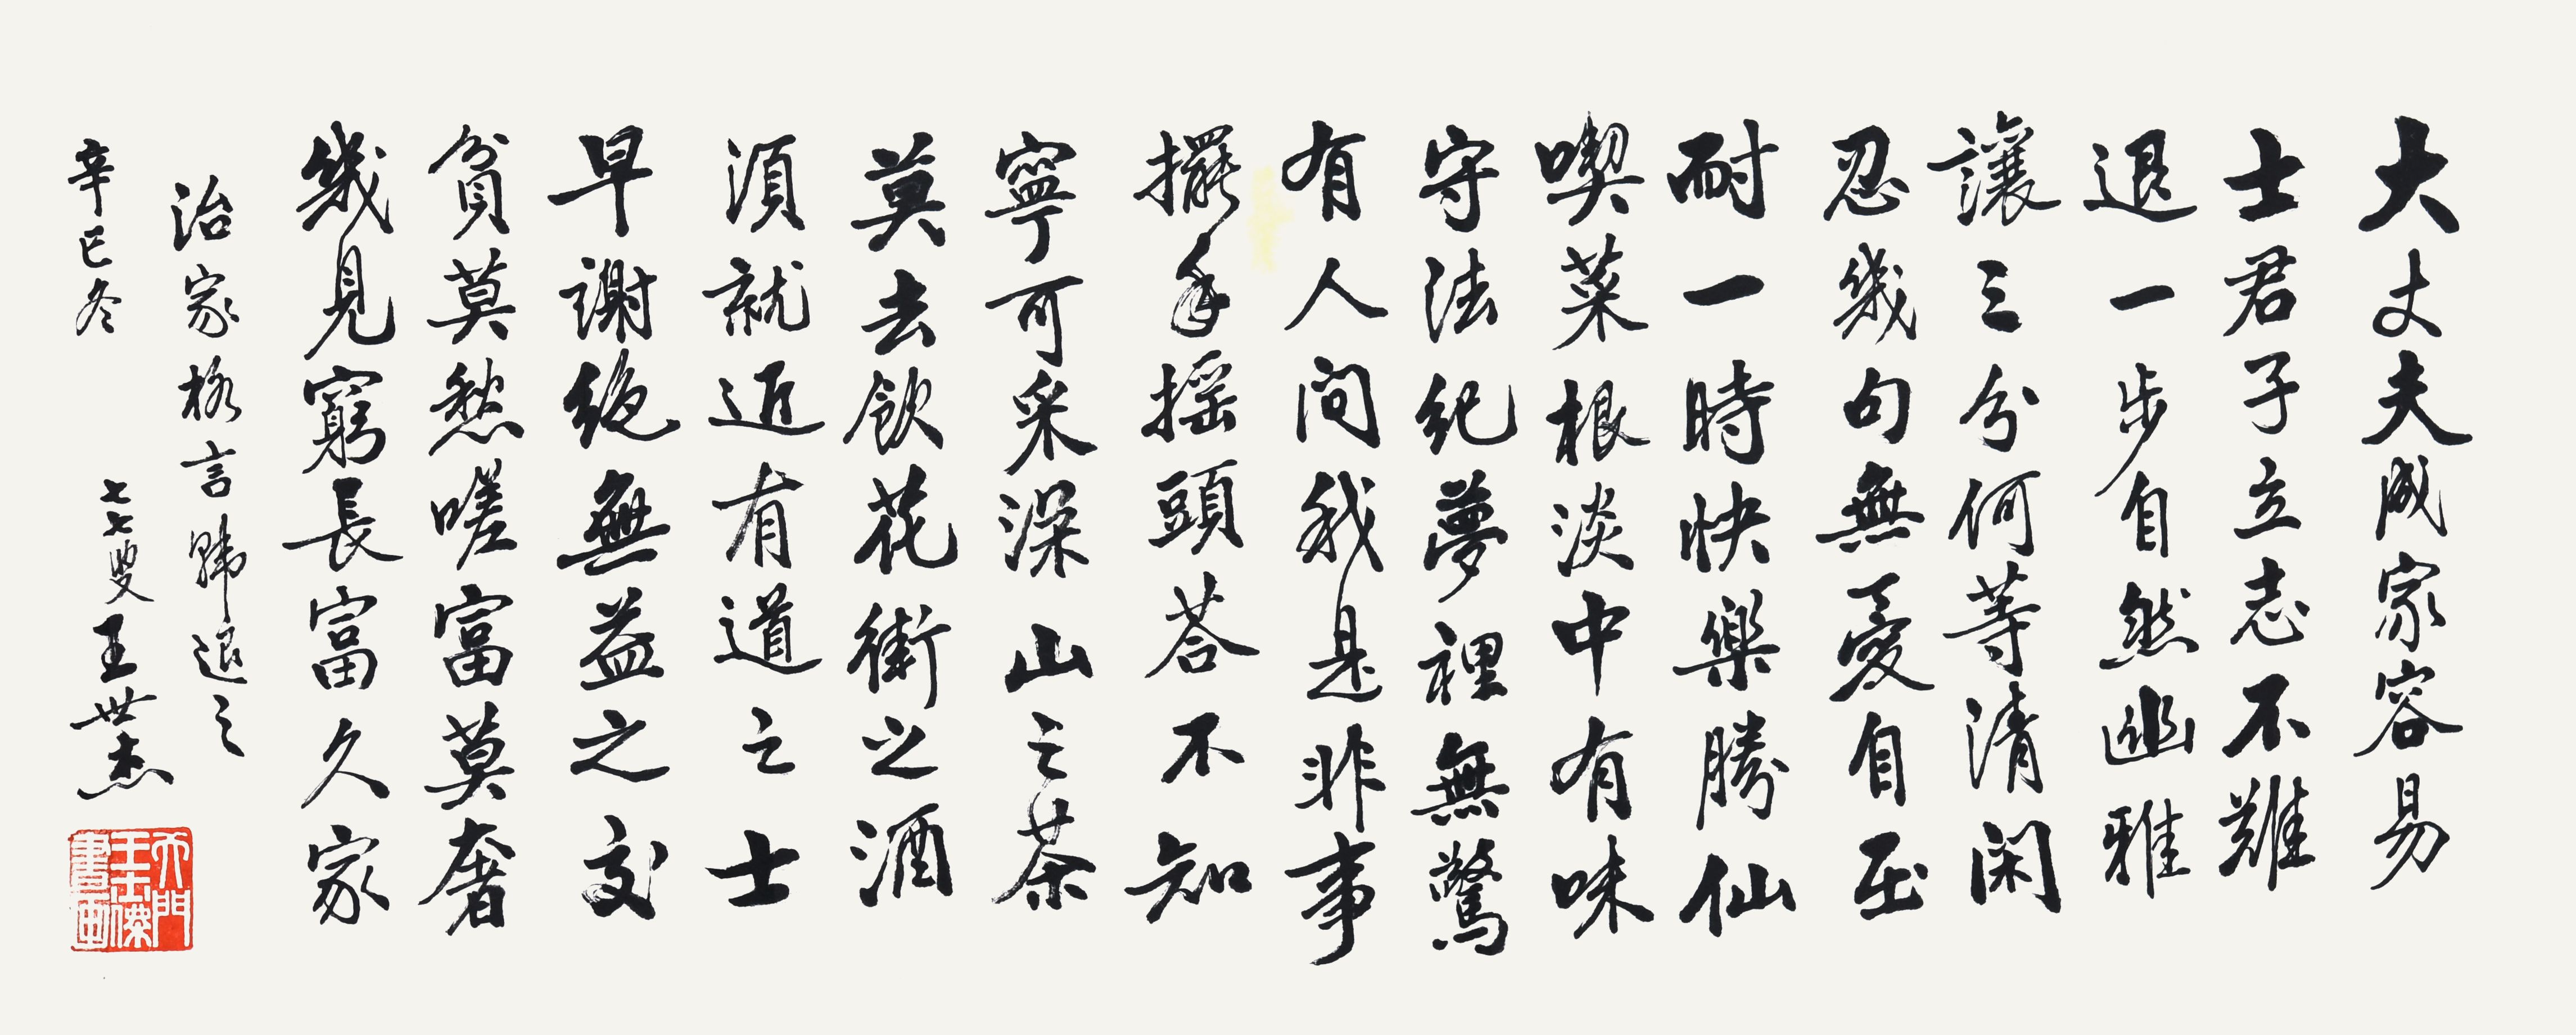 大丈夫成家容易
士君子立志不難
退一步自然幽雅
讓三分何等清閑
忍幾句無憂自在
耐一時快樂勝仙
喫菜根淡中有味
守法紀夢裡無驚
有人問我是非事
擺手搖頭荅不知
寧可采深山之茶
莫去飲花街之酒
須就近有道之士
早謝絕無益之交
貧莫愁嗟富莫奢
幾見窮長富久家
治家格言歸退之
辛巳冬
七七叟王世杰
天門
王世傑
書畫